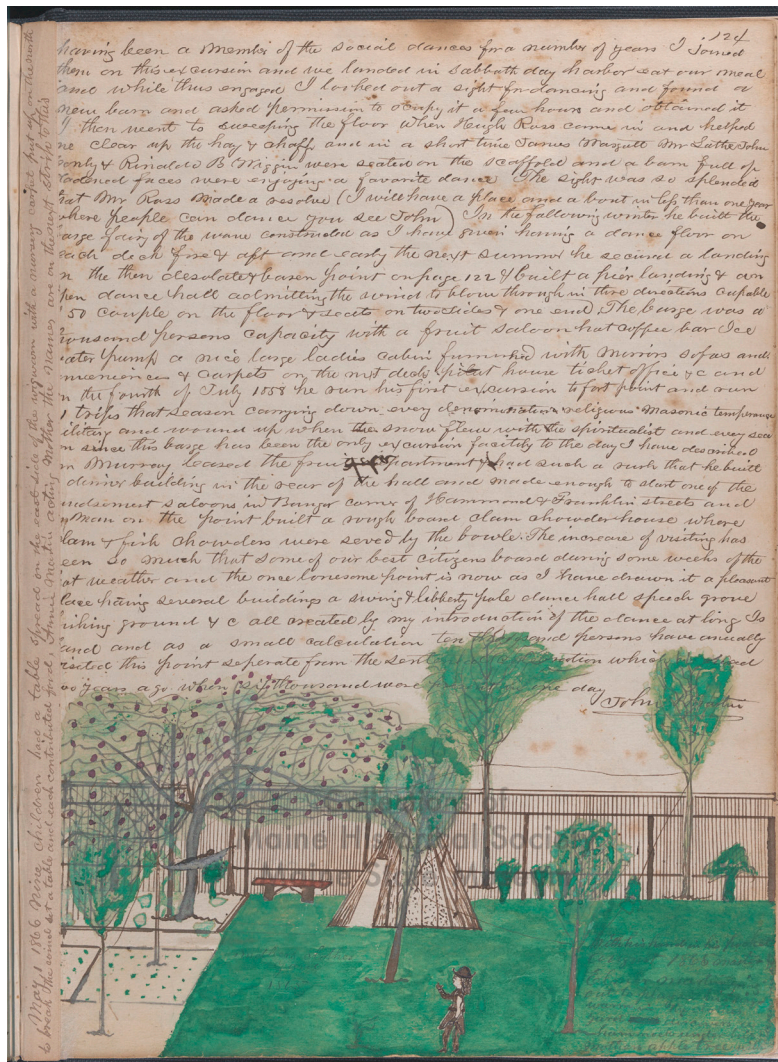 124
having been a member of the social dances for a number of years I Joined
them on this excursion and we landed in Sabbath day harbor eat our meal
and while thus engaged I looked out a sight for dancing and found a
new barn and asked permission to ocupy it a few hours and obtained it
I then went to sweeping the floor when Heugh Ross come in and helped
me clear up the hay & chaff and in a short time James Mr Luthe John
& Rinaldo B Wiggin were seated on the scaffold and a barn full of
faces were enjoying a favorite dance The sight was so splended
that Mr Ross made a resolve (I will have a place and a boat in less than one year
where people can dance you see John) In the following winter he built the
large fairy of the wave constructed as I have given having a dance floor on
each deck fore & aft and early the next summer he secured a landing
on the then desolate & baren point on page 122 & built a pier landing & an
open dance hall admitting the wind to blow through in three directions capable
50 couple on the floor & seats on two sides & one end The barge was a
thousand persons capacity with a fruit saloon hat coffee bar Ice
water pump a nice large ladies cabin furnished with mirrors sofas and
& carpets on the next deck pilot house ticket office & c and
on the fourth of July 1858 he run his first excursion to fort point and run
trips that season carrying down every denomination religious Masonic temperance
military and wound up when the snow flew with the spiritualist and every sea
on since this barge has been the only excursion facility to the day I have described
Murray leased the fruit department & had such a rush that he built
a diner building in the rear of the hall and made enough to start one of the
saloons in Bangor corner of Hammond & Franklin streets and
man on the point built a rough board clam chowder house where
clam & fish chowders were seved by the bowle. The increase of visiting has
been so much that some of our best citizens board during some weeks of the
hot weather and the once lonesome point is now as I have drawn it a pleasant
place having several buildings a swing & libberty pole dance hall speech grove
fishing ground & c all created by my introduction of the dance at long Is
land and as a small calculation ten thousand persons have anually
visited this point seperate from the
two years ago when six thousand were one day
John Martin
May 1 1866 nine children have a table spread on the east side of the wigwam with a nursery carpet put up on the north
to break the wind set a table and each contributed food Annie Martin acting Mother the names are on the next strip to this
Collections of
Maine Historical Society
1866
apple tree